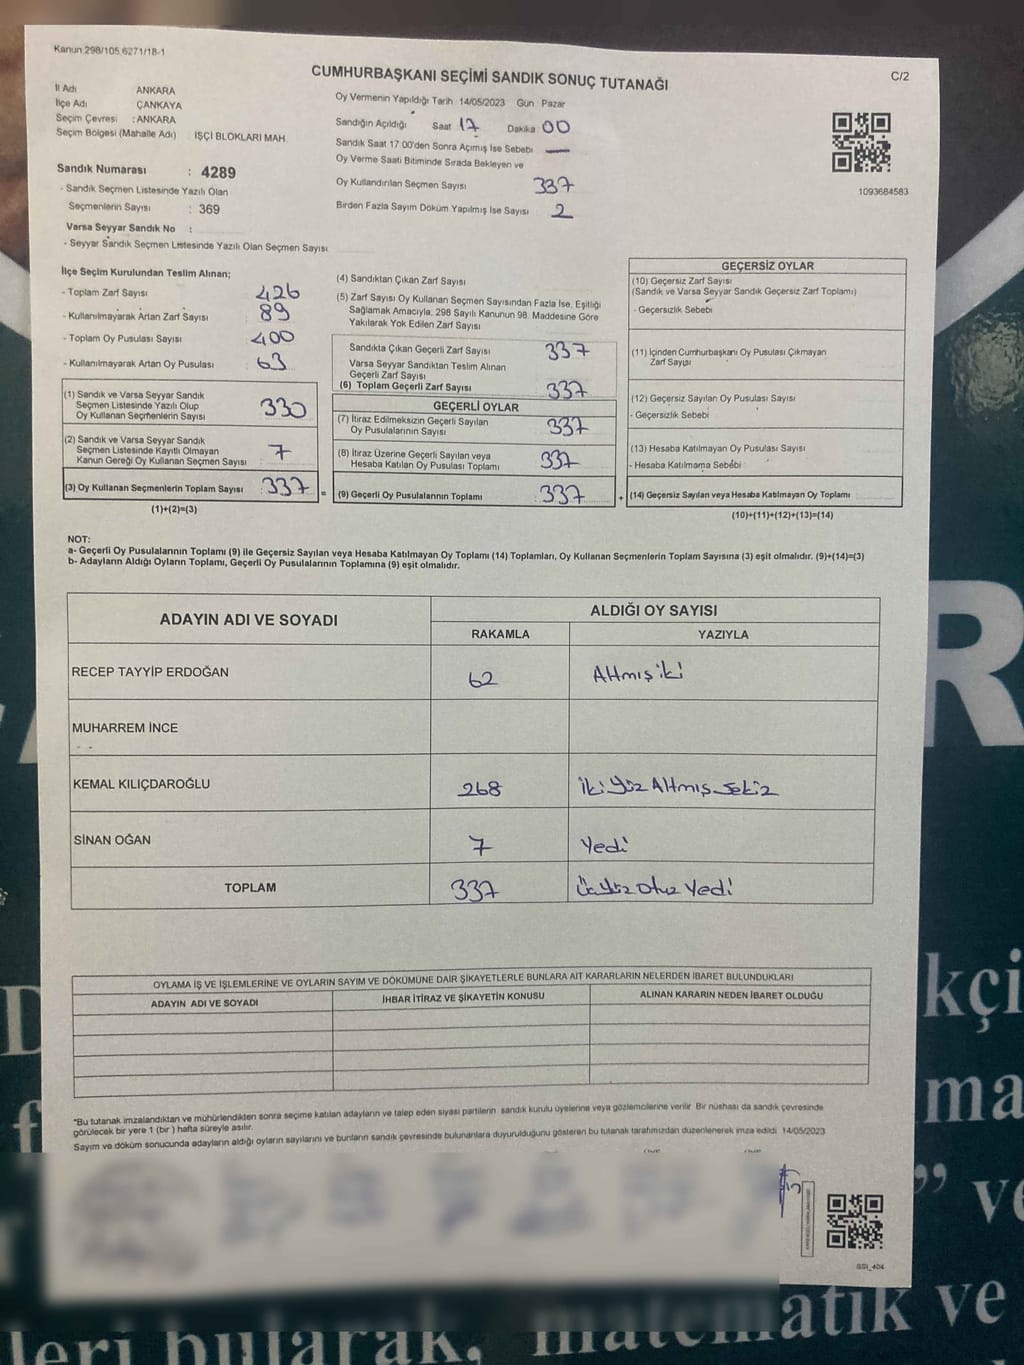 Kanun:298/105,6271/18-1
CUMHURBAŞKANI SEÇİMİ SANDIK SONUÇ TUTANAĞI
C/2
İl Adı ANKARA
İlçe Adı ÇANKAYA
Seçim Çevresi :ANKARA
Seçim Bölgesi (Mahalle Adı) İŞÇİ BLOKLARI MAH
Sandık Numarası : 4289
- Sandık Seçmen Listesinde Yazılı Olan
Seçmenlerin Sayısı : 369
Varsa Seyyar Sandık No :
- Seyyar Sandık Seçmen Listesinde Yazılı Olan Seçmen Sayısı
Oy Vermenin Yapıldığı Tarih 14/05/2023 Gün Pazar
Sandığın Açıldığı Saat 17 Dakika 00
Sandık Saat 17.00'den Sonra Açımış İse Sebebi —
Oy Verme Saati Bitiminde Sırada Bekleyen ve
Oy Kullandırılan Seçmen Sayısı 337
Birden Fazla Sayım Döküm Yapılmış İse Sayısı 2
1093684583
İlçe Seçim Kurulundan Teslim Alınan;
- Toplam Zarf Sayısı 426
- Kullanılmayarak Artan Zarf Sayısı : 89
- Toplam Oy Pusulası Sayısı : 400
- Kullanılmayarak Artan Oy Pusulası : 63
(1) Sandık ve Varsa Seyyar Sandık
Seçmen Listesinde Yazılı Olup
Oy Kullanan Seçmenlerin Sayısı 330
(2) Sandık ve Varsa Seyyar Sandık
Seçmen Listesinde Kayıtlı Olmayan
Kanun Gereği Oy Kullanan Seçmen Sayısı 7
(3) Oy Kullanan Seçmenlerin Toplam Sayısı : 337 =
(1)+(2)=(3)
(4) Sandıktan Çıkan Zarf Sayısı
(5) Zarf Sayısı Oy Kullanan Seçmen Sayısından Fazla İse, Eşitliği
Sağlamak Amacıyla, 298 Sayılı Kanunun 98. Maddesine Göre
Yakılarak Yok Edilen Zarf Sayısı
Sandıkta Çıkan Geçerli Zarf Sayısı 337
Varsa Seyyar Sandıktan Teslim Alınan
Geçerli Zarf Sayısı
(6) Toplam Geçerli Zarf Sayısı 337
GEÇERLİ OYLAR
(7) İtiraz Edilmeksizin Geçerli Sayılan
Oy Pusulalarının Sayısı 337
(8) İtiraz Üzerine Geçerli Sayılan veya
Hesaba Katılan Oy Pusulası Toplamı 337
(9) Geçerli Oy Pusulalarının Toplamı 337 +
GEÇERSİZ OYLAR
(10) Geçersiz Zarf Sayısı
(Sandık ve Varsa Seyyar Sandık Geçersiz Zarf Toplamı)
- Geçersizlik Sebebi
(11) İçinden Cumhurbaşkanı Oy Pusulası Çıkmayan
Zarf Sayısı
(12) Geçersiz Sayılan Oy Pusulası Sayısı
- Geçersizlik Sebebi
(13) Hesaba Katılmayan Oy Pusulası Sayısı
- Hesaba Katılmama Sebebi
(14) Geçersiz Sayılan veya Hesaba Katılmayan Oy Toplamı
(10)+(11)+(12)+(13)=(14)
NOT:
a- Geçerli Oy Pusulalarının Toplamı (9) ile Geçersiz Sayılan veya Hesaba Katılmayan Oy Toplamı (14) Toplamları, Oy Kullanan Seçmenlerin Toplam Sayısına (3) eşit olmalıdır. (9)+(14)=(3)
b- Adayların Aldığı Oyların Toplamı, Geçerli Oy Pusulalarının Toplamına (9) eşit olmalıdır.
ADAYIN ADI VE SOYADI
ALDIĞI OY SAYISI
RAKAMLA YAZIYLA
RECEP TAYYİP ERDOĞAN 62 Altmış iki
MUHARREM İNCE
KEMAL KILIÇDAROĞLU 268 İki Yüz Altmış Sekiz
SİNAN OĞAN 7 Yedi
TOPLAM 337 Üç Yüz Otuz Yedi
OYLAMA İŞ VE İŞLEMLERİNE VE OYLARIN SAYIM VE DÖKÜMÜNE DAİR ŞİKAYETLERLE BUNLARA AİT KARARLARIN NELERDEN İBARET BULUNDUKLARI
ADAYIN ADI VE SOYADI İHBAR İTİRAZ VE ŞİKAYETİN KONUSU ALINAN KARARIN NEDEN İBARET OLDUĞU
*Bu tutanak imzalandıktan ve mühürlendikten sonra seçime katılan adayların ve talep eden siyasi partilerin sandık kurulu üyelerine veya gözlemcilerine verilir. Bir nüshası da sandık çevresinde
görülecek bir yere 1 (bir) hafta süreyle asılır.
Sayım ve döküm sonucunda adayların aldığı oyların sayılarını ve bunların sandık çevresinde bulunanlara duyurulduğunu gösteren bu tutanak tarafımızdan düzenlenerek imza edildi. 14/05/2023
SSI_404
R
kçi
ma
” ve
leri bularak, matematik ve